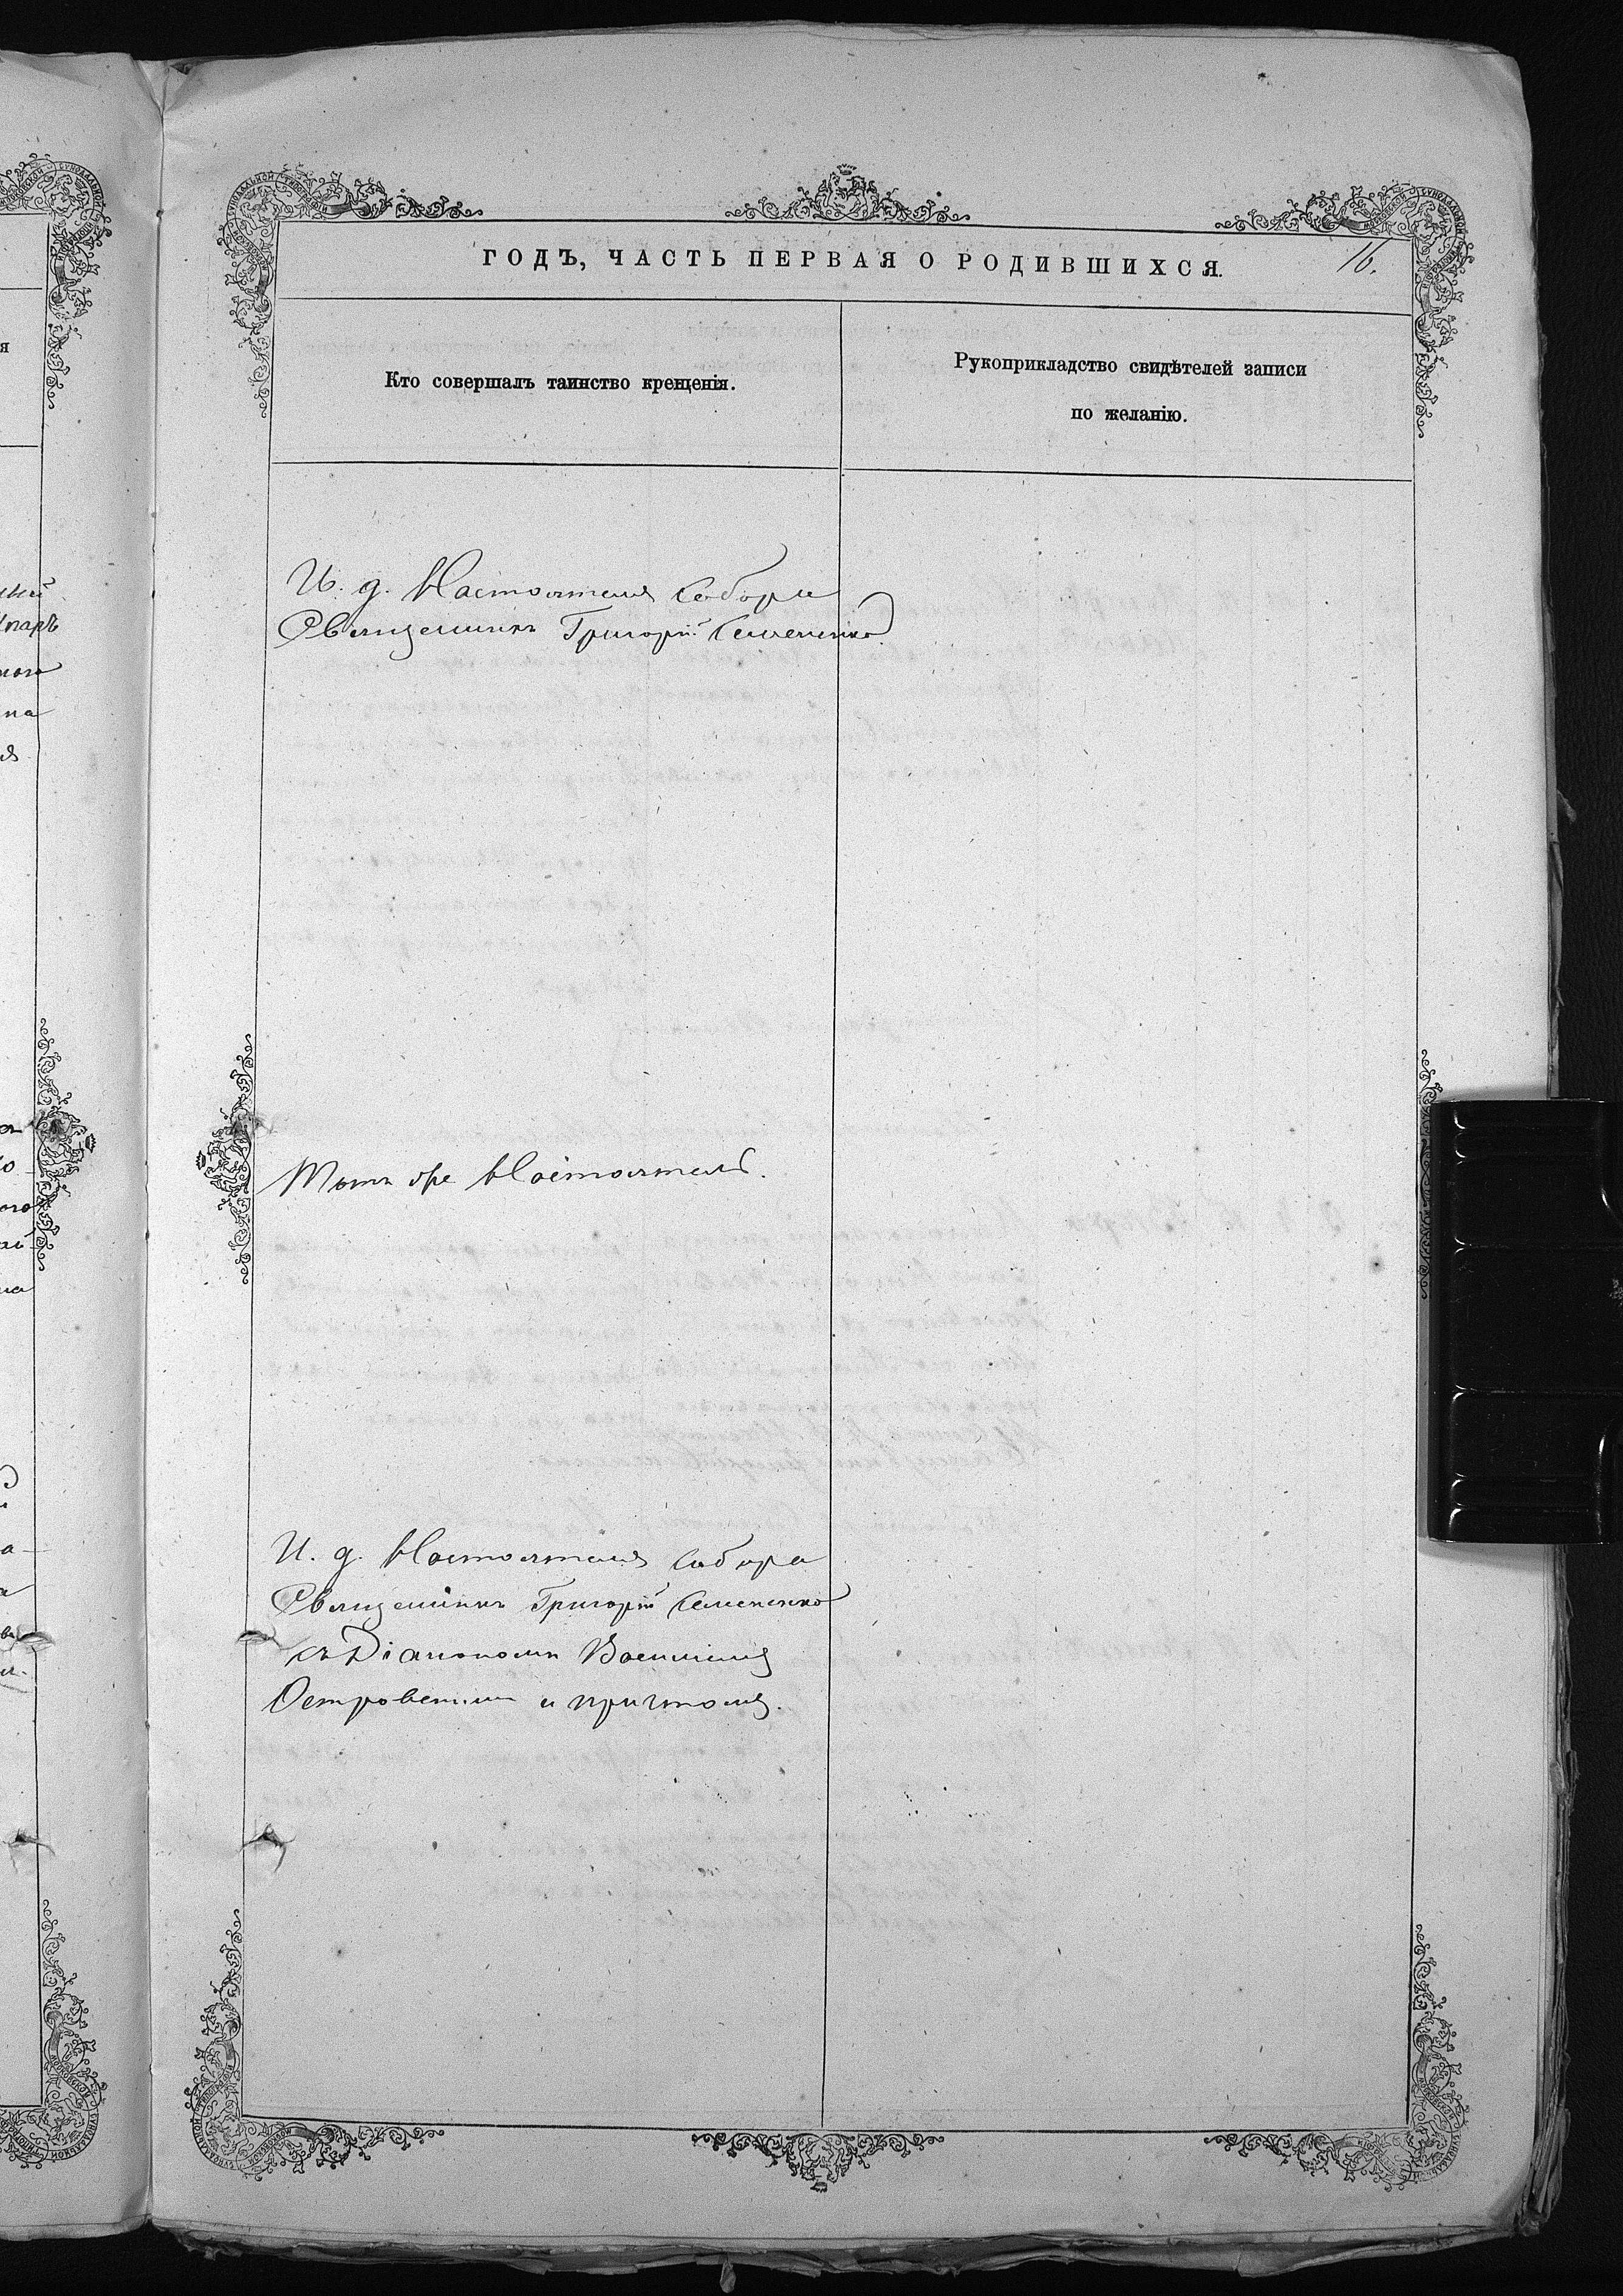 ГОДЪ, ЧАСТЬ ПЕРВАЯ О РОДИВШИХСЯ.
16.
Кто совершалъ таинство крещенія.
Рукоприкладство свидѣтелей записи
по желанію.
И. д. Настоятеля Собора
Священникъ Григорій Семененко
Тотъ же Настоятель.
И. д. Настоятеля Собора
Священникъ Григорій Семененко
съ Діакономъ Василіемъ
Островскимъ и причтомъ.